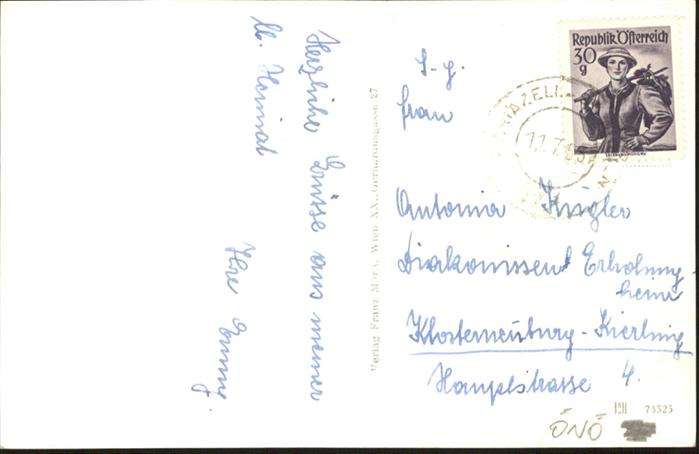 Herzliche Grüsse aus meiner
lb. Heimat
Ihre Emmy.
Verlag Franz Mörtl, Wien XX., Gerhardusgasse 27
Republik Österreich
30
g
S. g.
Frau
Antonia Kugler
Diakonissen Erholungs-
heim
Klosterneuburg-Kierling
Hauptstrasse 4.
PH 75325
ÖNÖ